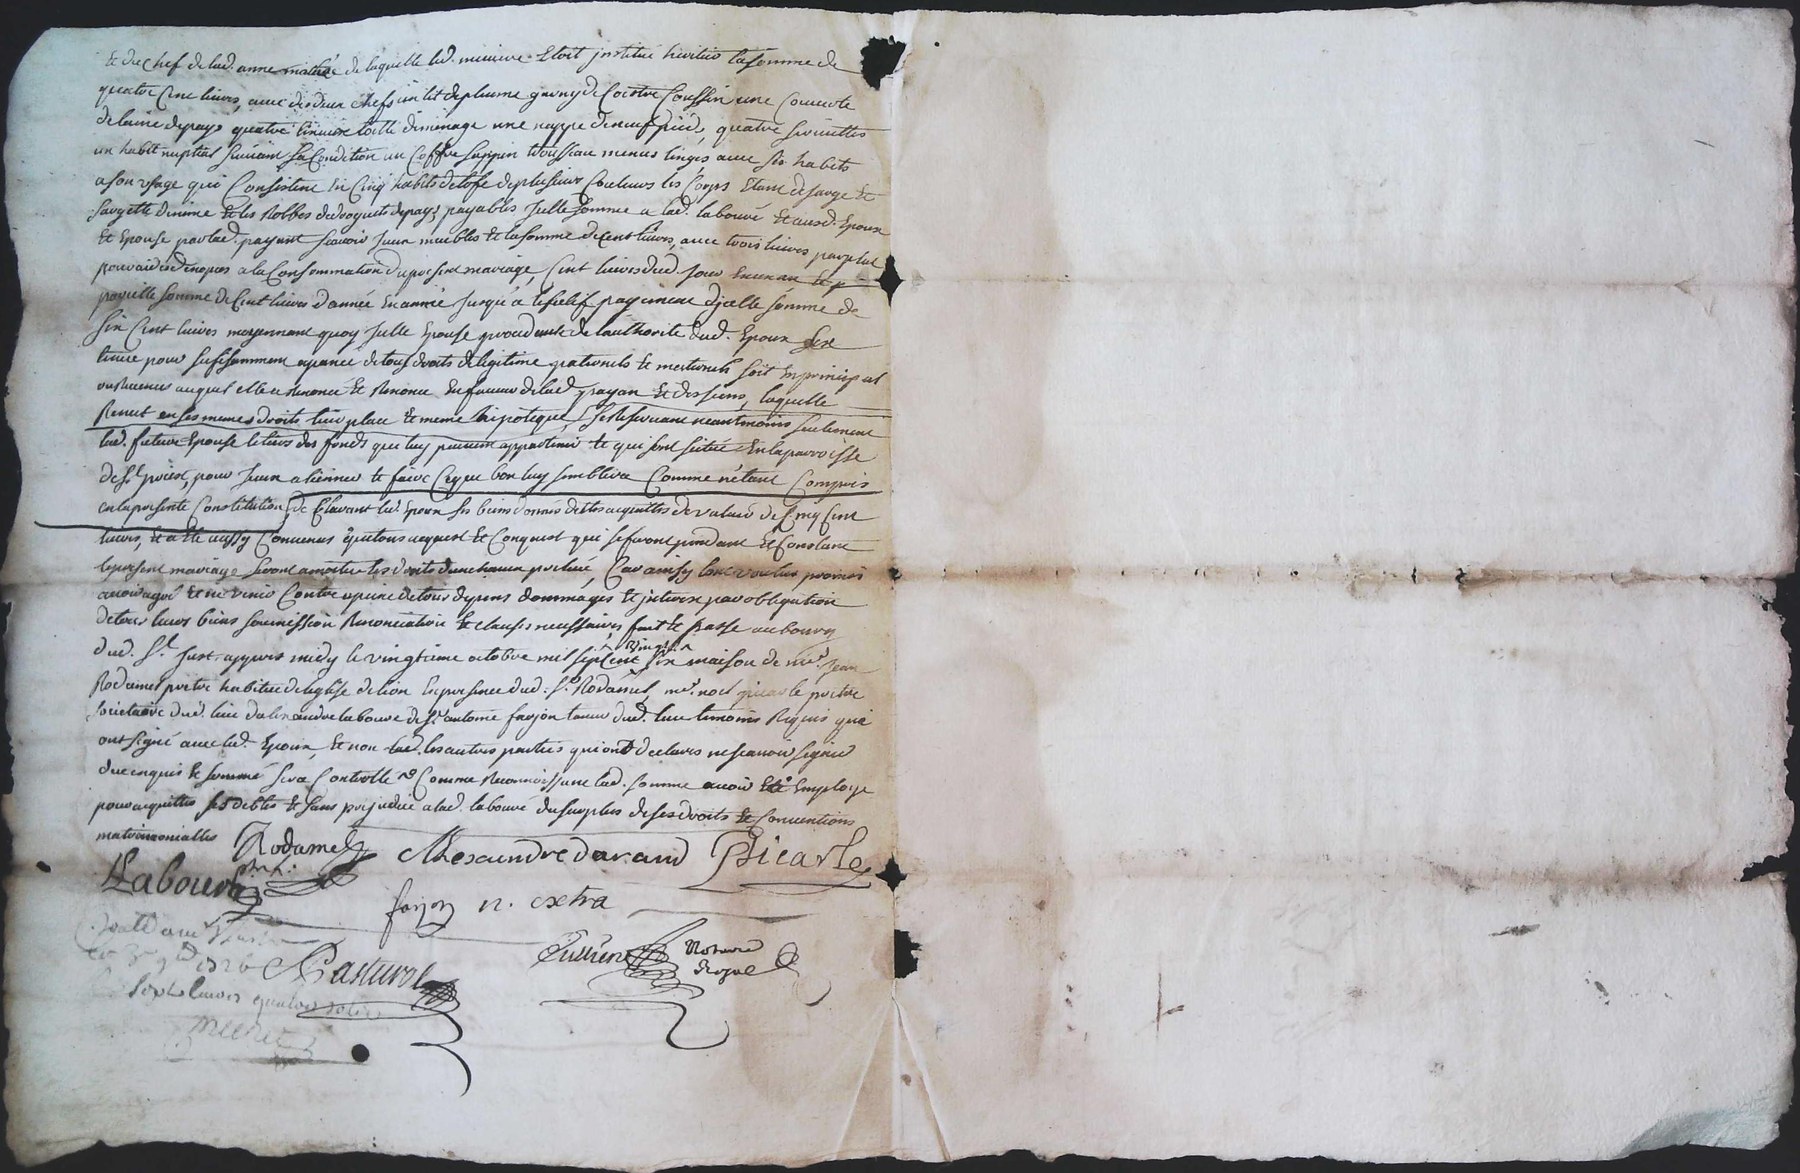 et du chef de lad. anne mathié de laquelle lad. miniere Etoit institué heritiere la somme de
quatre Cent livres, avec desdeux chefs un lit de plume garny de Coestre Coussin une Couverte
de laine depays quatre linceux toille de menage une nappe de neuf pieds, quatre serviettes
un habit nuptial suivant sa Condition un Coffre sappin trousseau menus linges avec ses habits
a son usage qui Consistent En Cinq habits detofe de plusieurs Couleurs les Corps Etant de sarge Et
sargette de nime Et les Robbes de droguets depays payables jcelle somme a lad. labouré Et ausd. Epoux
Et Epouse par lad. payant scavoir jceux meubles Et la somme de Cent livres, avec trois livres
a la Consommation du present mariage, Cent livres dud. jour En un an Et p
pareille somme de Cent livres d'année En année jusqu'a l'efectif payement djcelle somme de
six Cent livres moyennant quoy jcelle Epouse procedante de l'authorité dud. Epoux sest
tenue pour sufisamment apanée de tous droits de legitime paternels Et maternels soit En principal
ou auquel elle a Renoncé Et Renonce En faveur de lad. payan Et des siens, laquelle
Remet en ses memes droits lieu place Et meme hipoteque, se Reservant neantmoins seulement
lad. future Epouse le tiers des fonds que luy peuvent appartenir Et qui sont situés En la parroisse
de St. priest, pour jceux aliener Et faire Ce que bon luy semblera Comme n'étant Compris
en la presente Constitution, de Clarant led. Epoux ses biens donnés dettes acquittés de valeur de Cinq Cent
livres, Et a Eté aussy Convenus que tous acquest Et Conquest qui se feront pendant Et Constant
le present mariage seront Car ainsy l'ont voulus promis
avoir agré Et ne venir Contre a peine de tous depens dommages Et jnterets par obligation
de tous leurs biens soumission Renonciation Et clauses necessaires, fait Et passé au bourg
dud. St. just appres midy le vingtieme octobre mil sept Cent vingt six maison de mre. Jean
Rodamel pretre habitué de l'eglise de lion En presence dud. Sr. Rodamel, mre. noel picarle pretre
societaire dud. lieu d'alexandre labouré de St. antoine farjon tanneur dud. lieu temoins Requis qui
ont signé avec led. Epoux, Et non lad. les autres parties qui ont declarés ne scavoir signer
de ce enquis Et sommé sera Controllé Comme Reconnoissant lad. somme avoir Eté Employe
pour acquitter ses debtes Et sans prejudice a lad. labouré du surplus de ses droits Et Conventions
matrimonialles
Rodamel ptre. Alexandre durand Picarle
Labouré
farjon n. extra
le 3e 9bre 1726 Pasturel Notaire
Royal
sept livres quatre sols